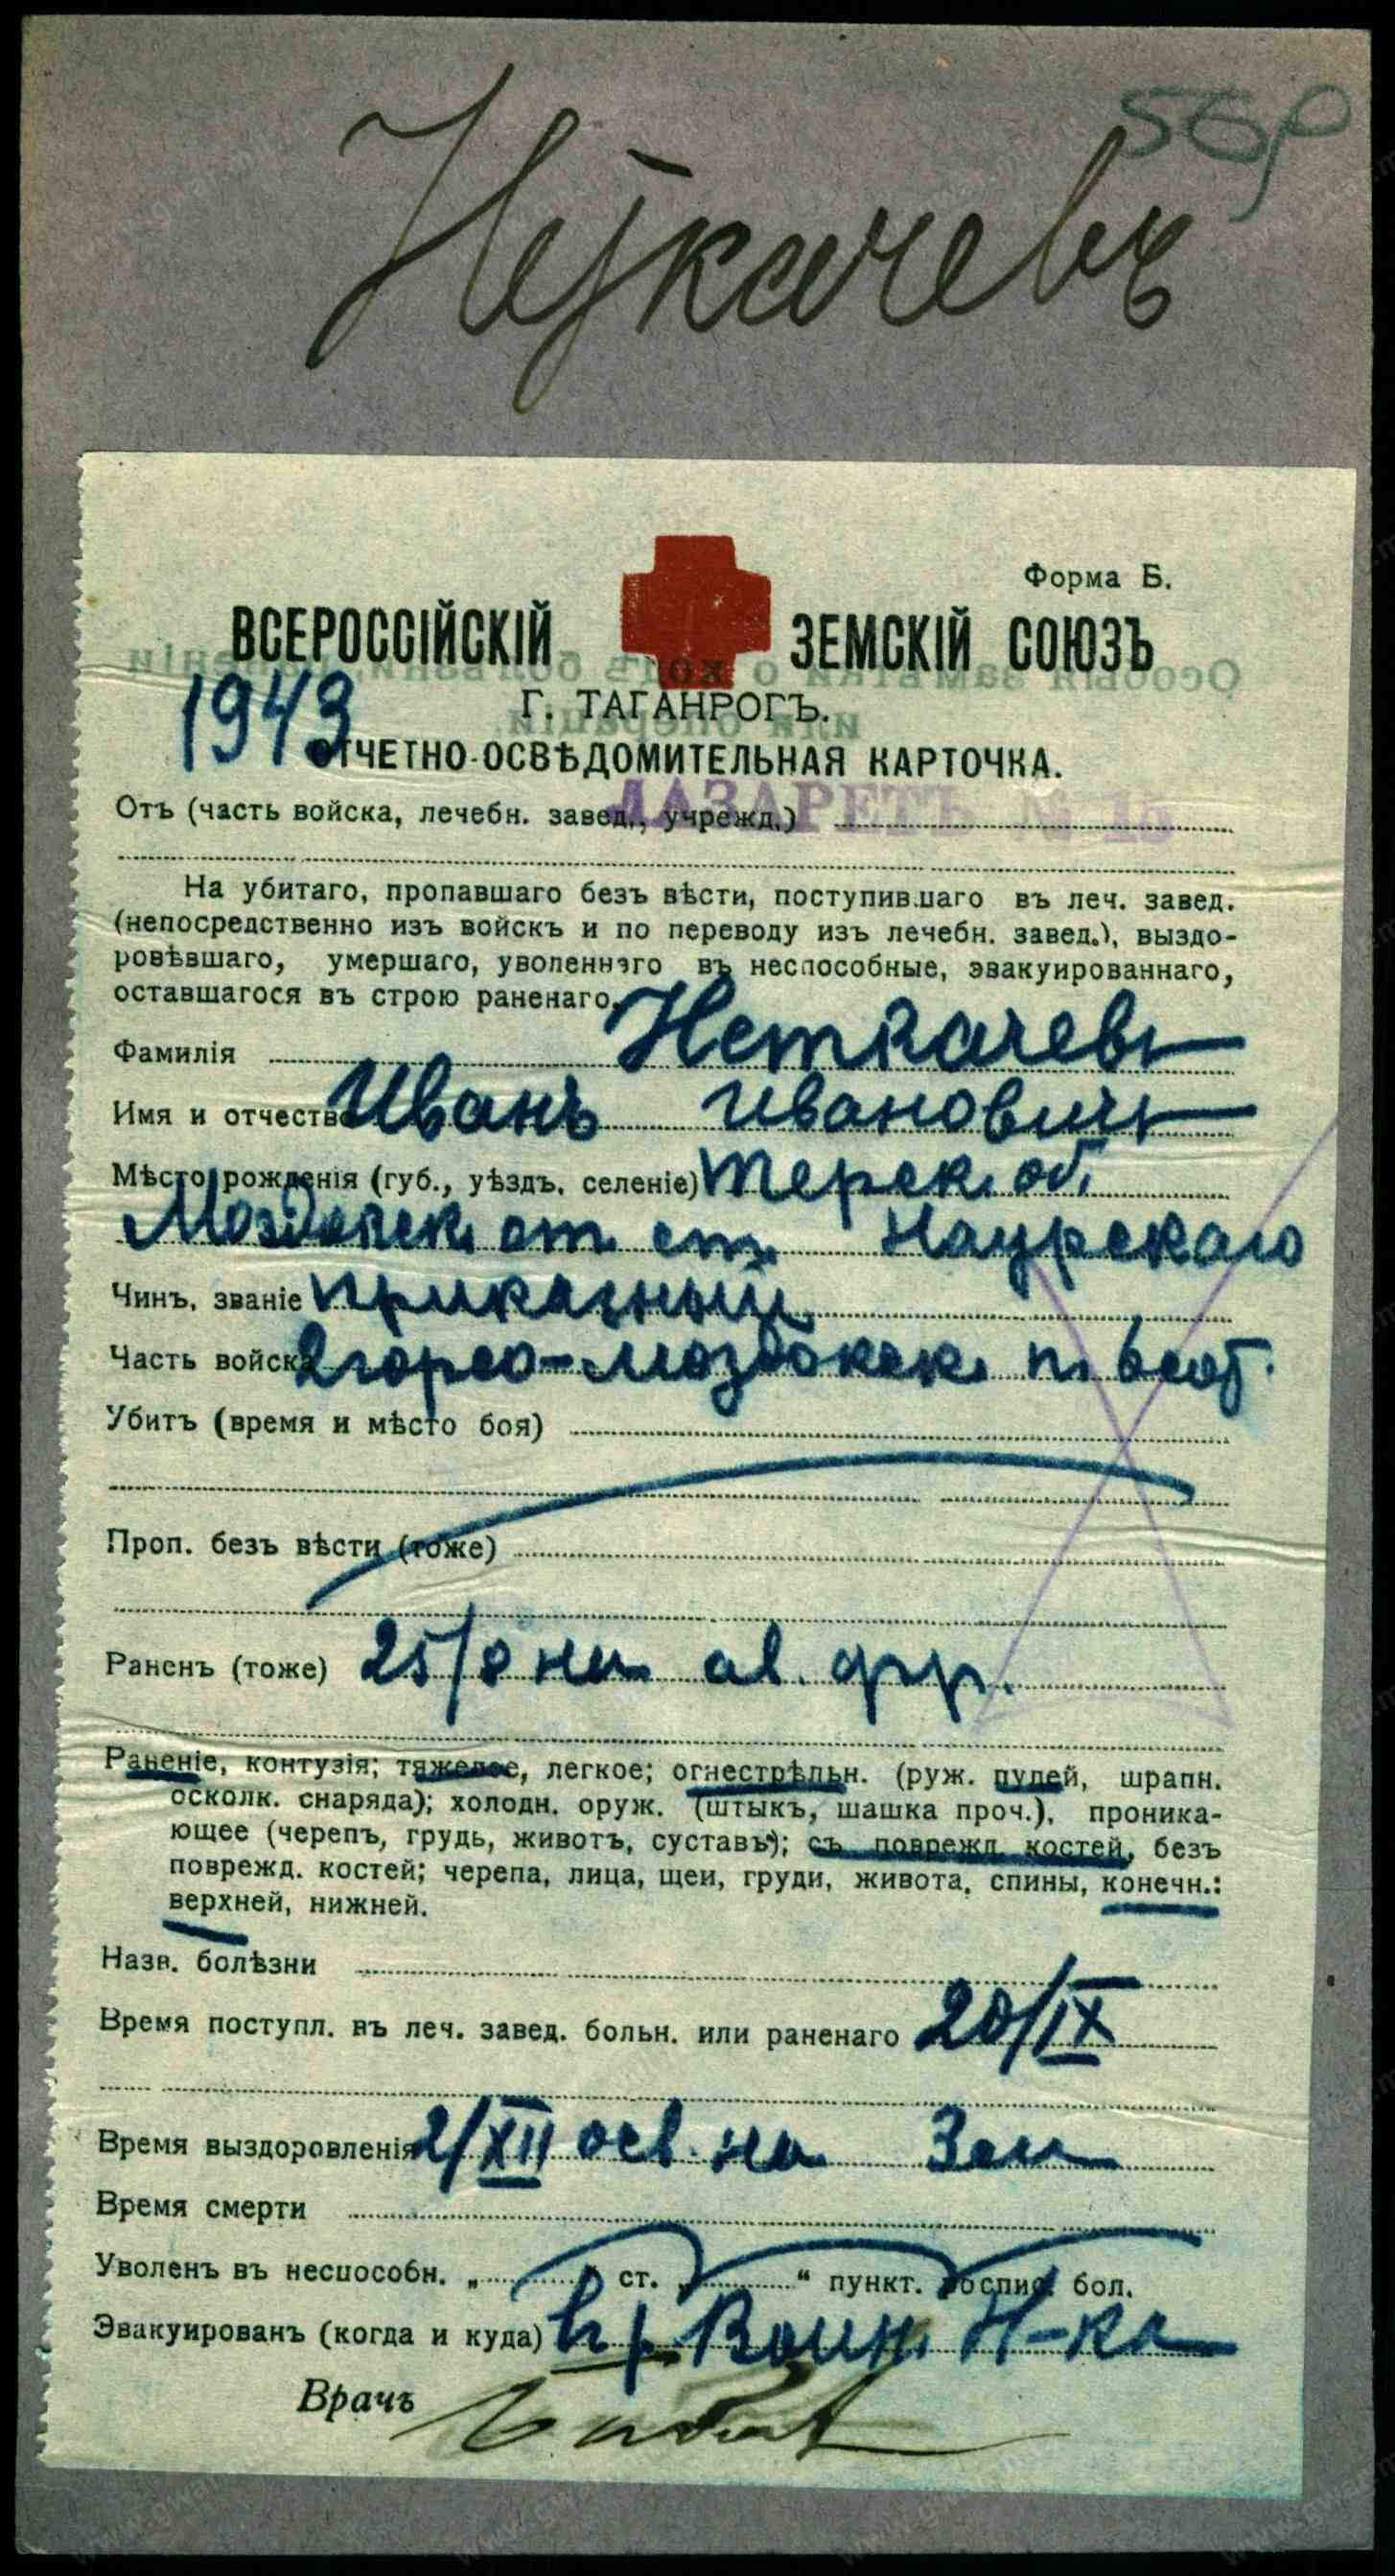 56р
Неткачевъ
Форма Б.
ВСЕРОССІЙСКІЙ ЗЕМСКІЙ СОЮЗЪ
Г. ТАГАНРОГЪ.
1943
ОТЧЕТНО-ОСВѢДОМИТЕЛЬНАЯ КАРТОЧКА.
Отъ (часть войска, лечебн. завед., учрежд.) ЛАЗАРЕТЪ № 15
На убитаго, пропавшаго безъ вѣсти, поступившаго въ леч. завед.
(непосредственно изъ войскъ и по переводу изъ лечебн. завед.), выздо-
ровѣвшаго, умершаго, уволеннаго въ неспособные, эвакуированнаго,
оставшагося въ строю раненаго.
Фамилія Неткачевъ
Имя и отчество Иванъ Ивановичъ
Мѣсто рожденія (губ., уѣздъ, селеніе) Терск. об.
Моздокск. от. ст. Наурскаго
Чинъ, званіе Приказный
Часть войска 2 горско-Моздокск. п. 6 сот.
Убитъ (время и мѣсто боя)
Проп. безъ вѣсти (тоже)
Раненъ (тоже) 25/8 на ав. фр.
Раненіе, контузія; тяжелое, легкое; огнестрѣльн. (руж. пулей, шрапн.
осколк. снаряда); холодн. оруж. (штыкъ, шашка проч.), проника-
ющее (черепъ, грудь, животъ, суставъ); съ поврежд. костей, безъ
поврежд. костей; черепа, лица, щеи, груди, живота, спины, конечн.:
верхней, нижней.
Назв. болѣзни
Время поступл. въ леч. завед. больн. или раненаго 20/IX
Время выздоровленія 2/XII осв. на
Время смерти
Уволенъ въ неспособн. „ “ ст. „ “ пункт. роспис. бол.
Эвакуированъ (когда и куда) Воин. Н-ка
Врачъ